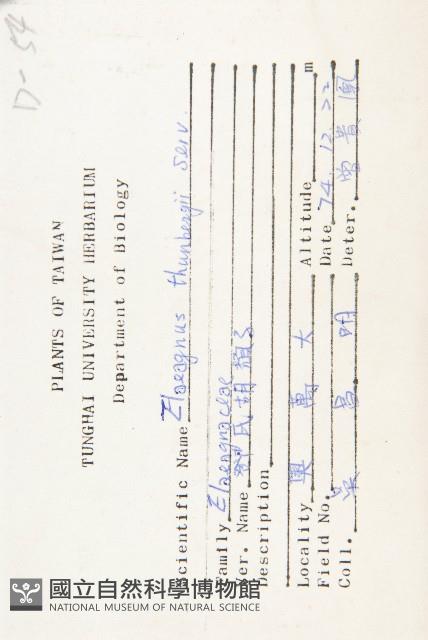 D-54
PLANTS OF TAIWAN
TUNGHAI UNIVERSITY HERBARIUM
Department of Biology
Scientific Name Elaeagnus thunbergii Serv.
Family Elaeagnaceae
Ver. Name 鄧氏胡頹子
Description
Locality 奧萬大 Altitude m
Field No. Date 74. 12. 22
Coll. 吳昌明 Deter. 曾貴
國立自然科學博物館
NATIONAL MUSEUM OF NATURAL SCIENCE